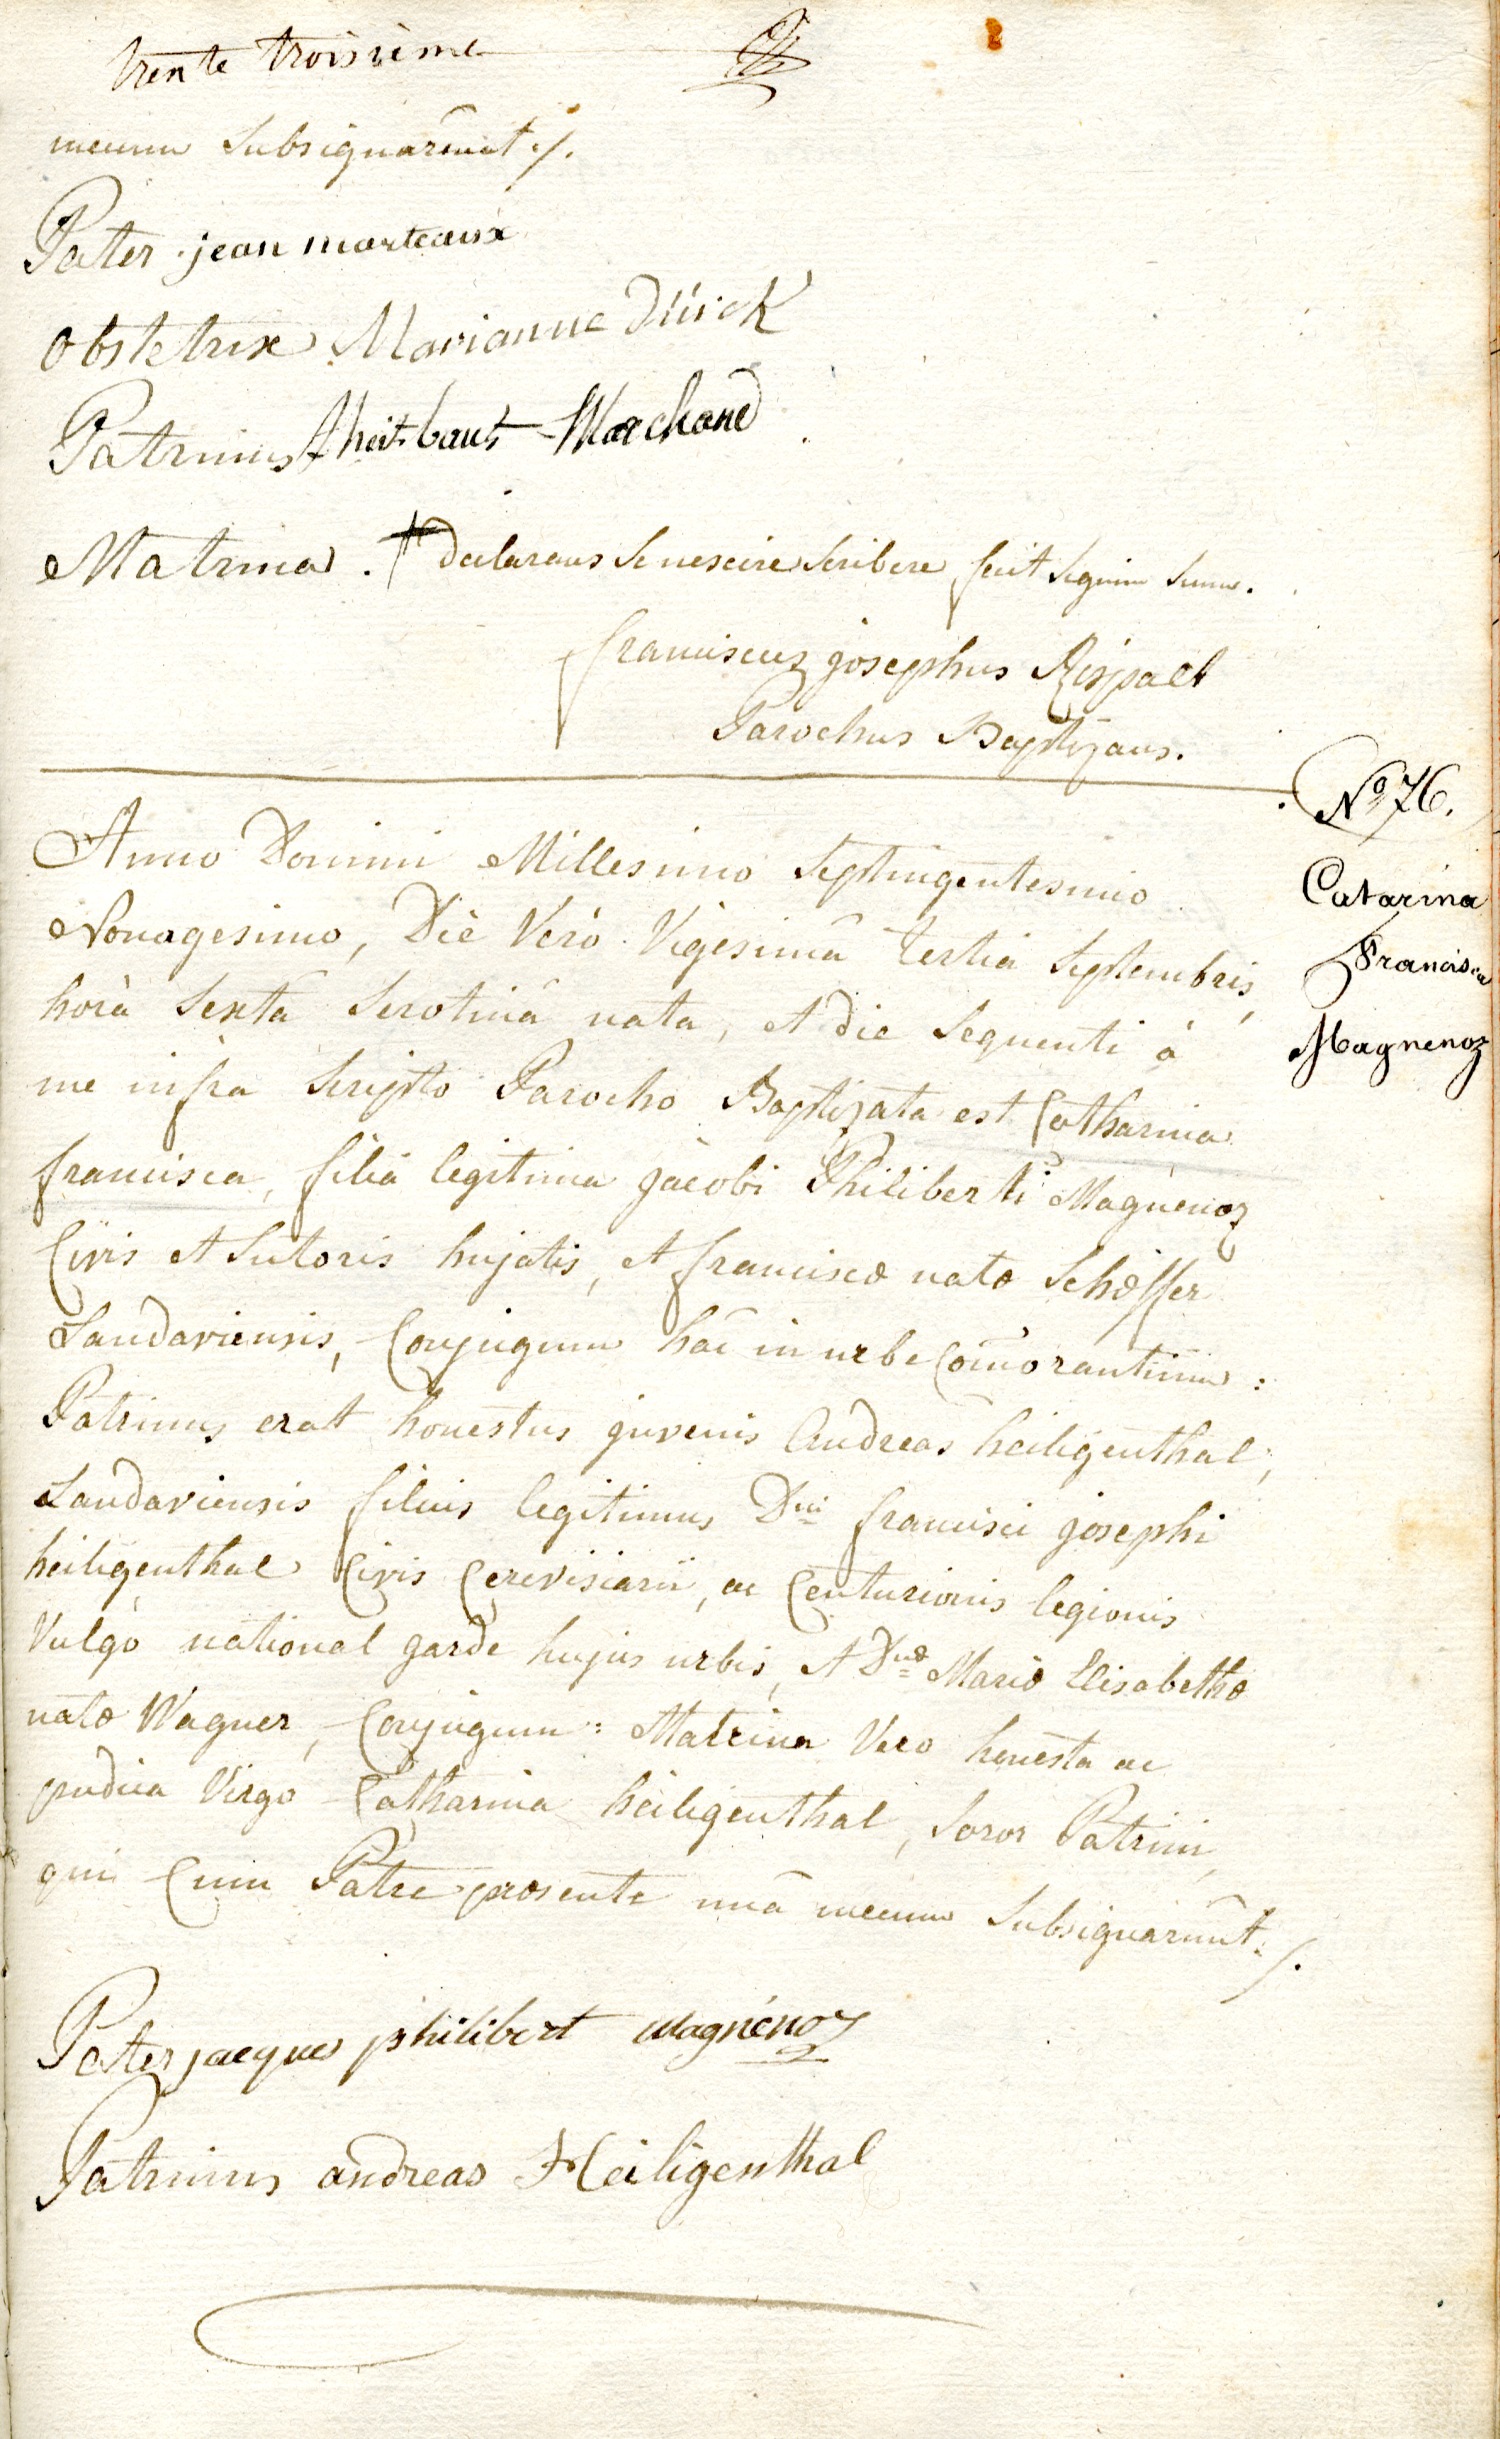 trente troisième
mecum Subsignarunt ·/.
Pater jean marteaux
Obstetrix Marianne Dürck
Patrinus Marchand
Matrina . † declarans Se nescire Scribere fecit Signum Suum.
franciscus josephus
Parochus Baptizans.
Nº 76.
Catarina
Francisca
Magnenoz
Anno Domini Millesimo Septingentesimo
Nonagesimo, Diè Verò Vigesimâ tertiâ Septembris,
horâ Sextâ Serotinâ nata, et die Sequenti à
me infra Scripto Parocho Baptizata est Catharina
francisca, filia legitima jacobi Philiberti Magnenoz
Civis et Sutoris hujatis, et franciscæ natæ Schöffer
Landaviensis, Conjugum hâc in urbe Com̄orantium :
Patrinus erat honestus juvenis Andreas heiligenthal,
Landaviensis filius legitimus Dni francisci josephi
heiligenthal Civis Cerevisiarii, ac Centurionis legionis
Vulgò national garde hujus urbis, et Dnæ Mariæ Elisabethæ
natæ Wagner, Conjugum : Matrina Vero honesta ac
pudica Virgo Catharina heiligenthal, Soror Patrini,
qui Cum Patre præsente unâ mecum Subsignarunt ·/.
Pater jacques philibert magnénoz
Patrinus andreas Heiligenthal